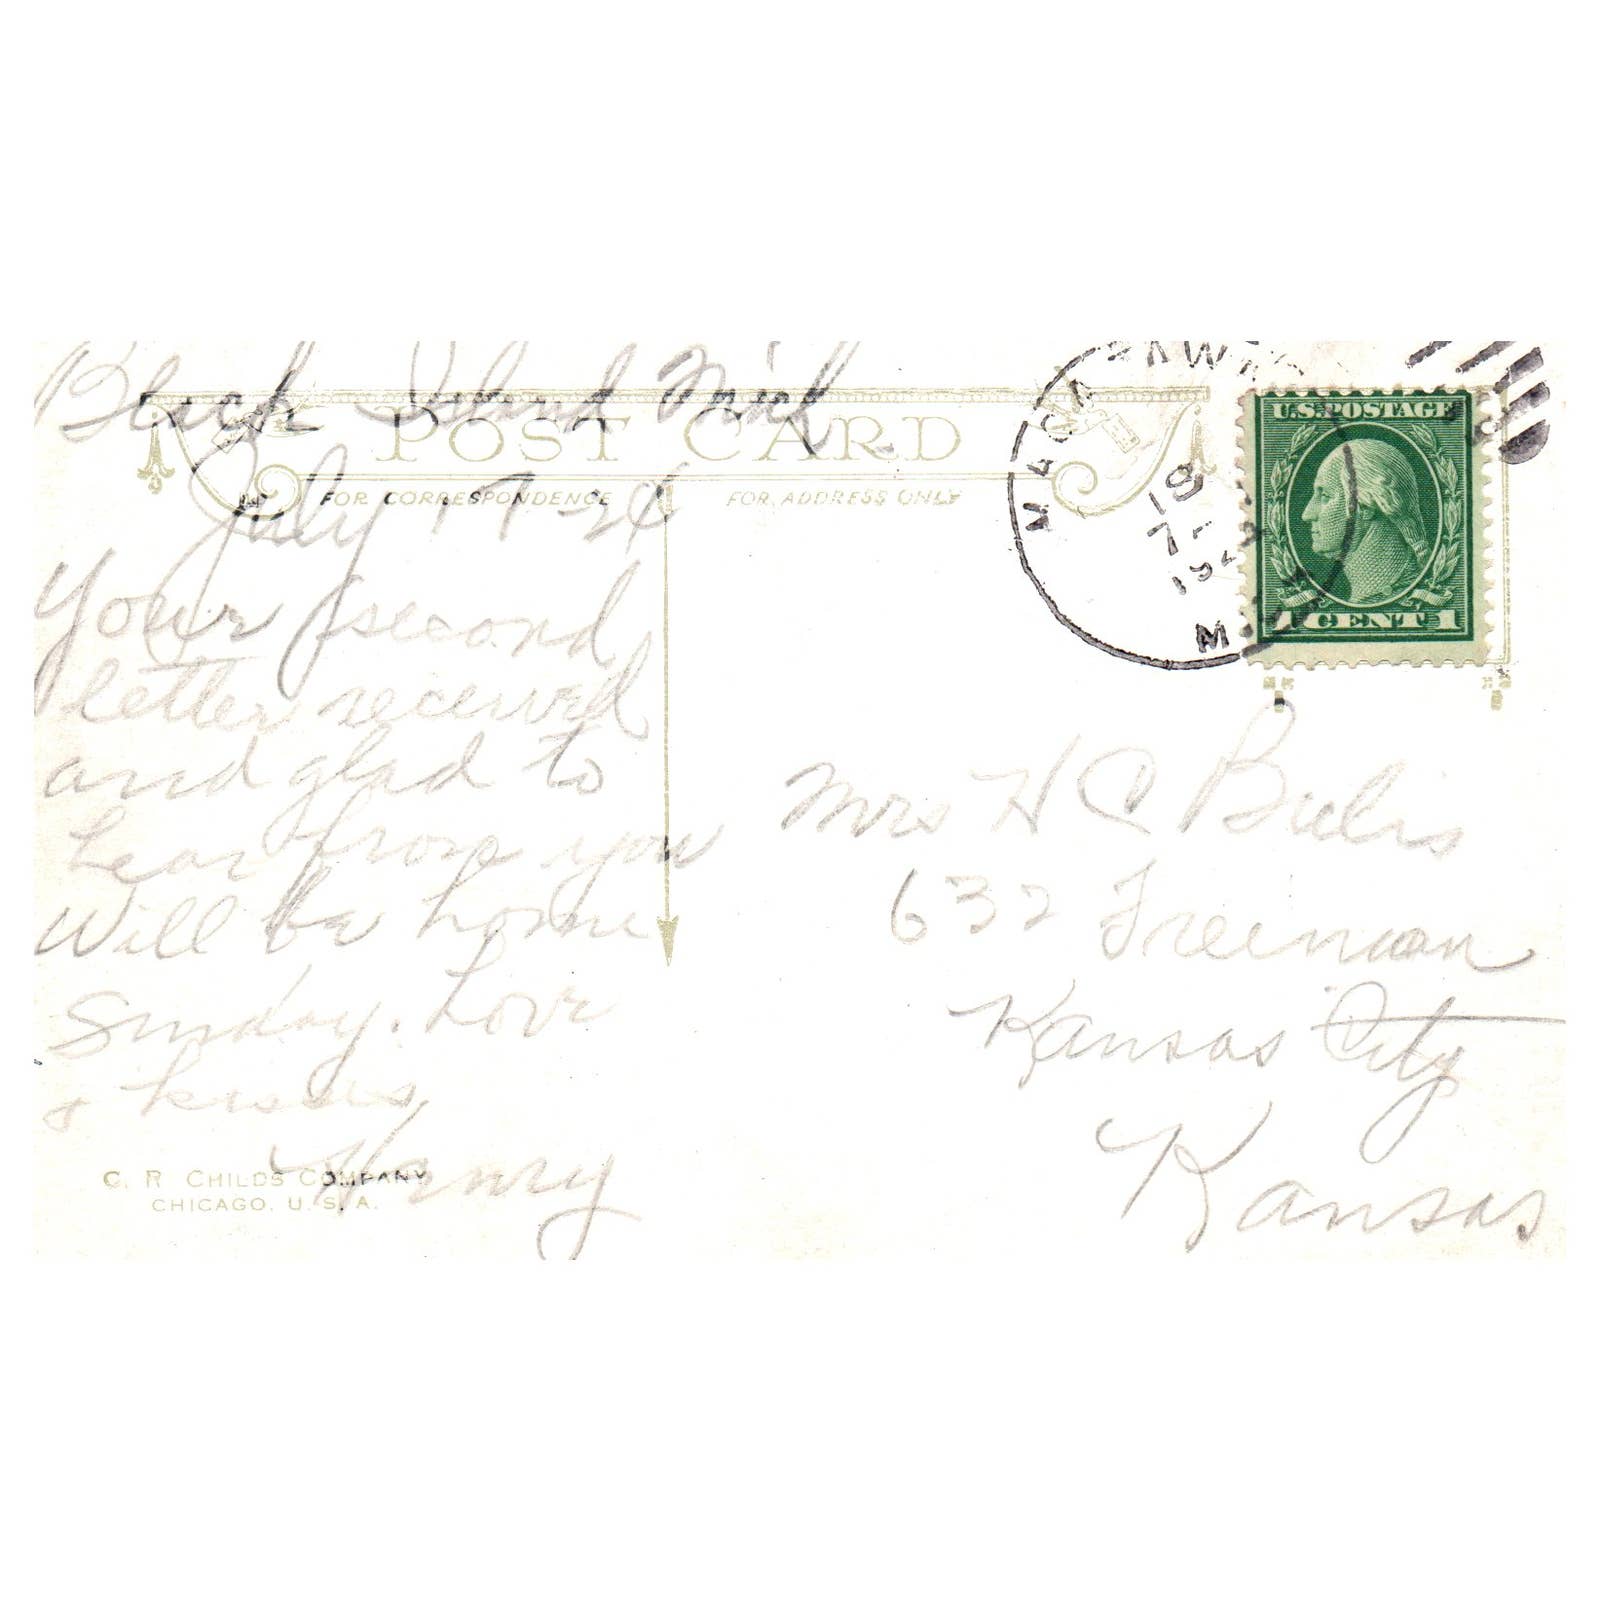 Black Island Mich
POST CARD
July 17-24
FOR CORRESPONDENCE
FOR ADDRESS ONLY
Your second
letter received
and glad to
hear from you
Will be home
Sunday. Love
& kisses
Henry
C. R. CHILDS COMPANY
CHICAGO. U. S. A.
18
7
U.S. POSTAGE
1 CENT 1
Mrs H C
632 Freeman
Kansas City
Kansas